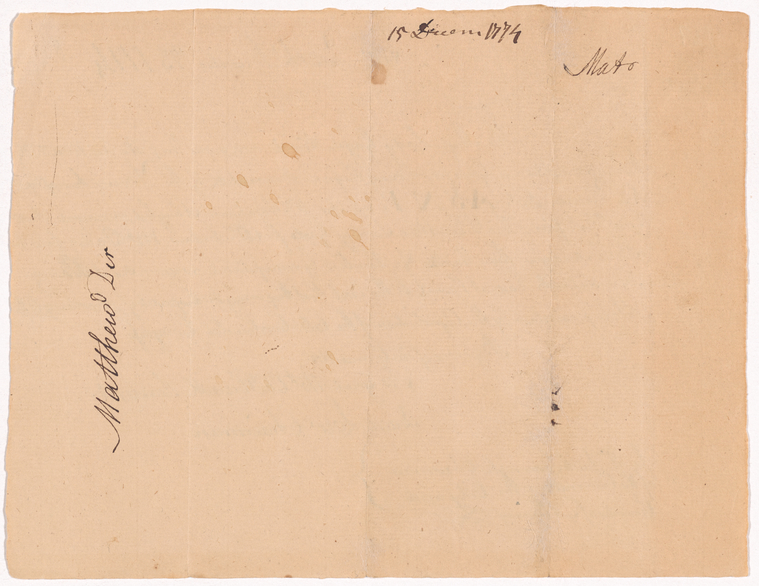 15 Decem 1774
Mato
Matthew Der